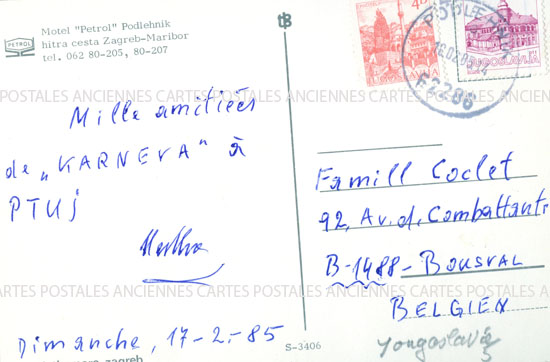 Motel "Petrol" Podlehnik
hitra cesta Zagreb-Maribor
tel. 062 80-205, 80-207
PETROL
JUGOSLAVIJA
62286
CARTES POSTALES ANCIENNES CARTES POSTALES ANCIENNES CARTES POSTALES ANCIENNES
Mille amitiées
de „KARNEVA" à
PTUJ
Famill Coclet
92, Av. d. Combattants
B-1488-BOUSVAL
BELGIEN
CARTES POSTALES ANCIENNES CARTES POSTALES ANCIENNES CARTES POSTALES ANCIENNES
Dimanche, 17-2.-85
S-3406
Yougoslavie
zagreb